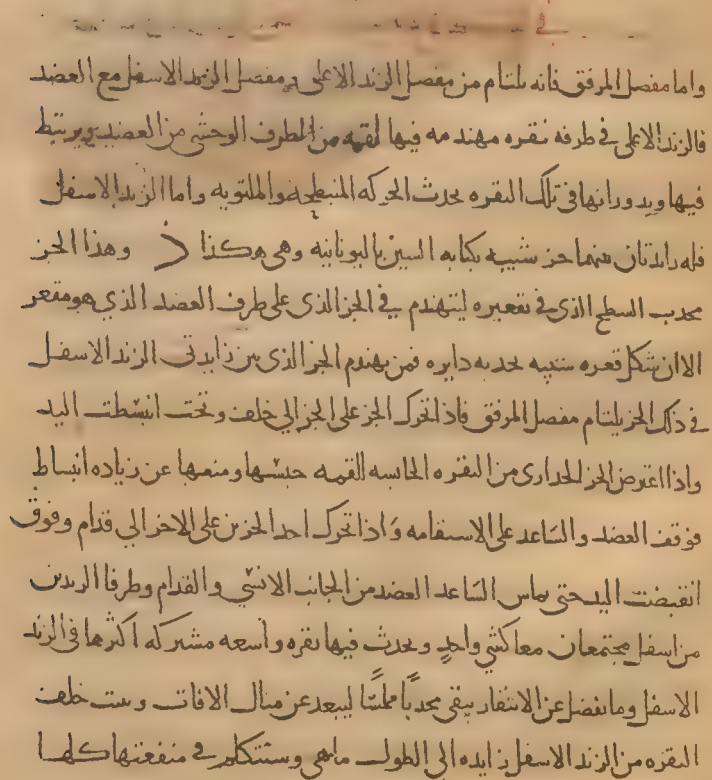 واما مفصل المرفق فانه يلتام من مفصل الزند الاعلى و مفصل الزند الاسفل مع العضد
فالزند الاعلى في طرفه نقره مهندمه فيها لقمه من الطرف الوحشي من العضد ويرتبط
فيها وبدورانها في تلك النقره يحدث الحركه المنبطحه والملتويه واما الزند الاسفل
فله زايدتان بينهما حز شبيه بكتابه السين باليونانيه وهي هكذا وهذا الحز
محدب السطح الذي في تقعيره ليتهندم في الحز الذي على طرف العضد الذي هو مقعر
الا ان شكل قعره شبيه بحدبه دايره فمن تهندم الحز الذي بين زايدتي الزند الاسفل
في ذلك الحز يلتام مفصل المرفق فاذا تحرك الحز على الحز الي خلف و تحت انبسطت اليد
واذا اعترض الحز الجداري من النقره الحابسه القمه حبسها ومنعها عن زياده انبساط
فوقف العضد والساعد على الاستقامه واذا تحرك احد الحزين على الاخر الي قدام وفوق
انقبضت اليد حتى يماس الساعد العضد من الجانب الانسي والقدام وطرفا الزندين
من اسفل يجتمعان معا كشي واحد و يحدث فيها نقره واسعه مشتركه اكثرها في الزند
الاسفل وما يفضل عن الانتقار يبقى محدبا مملسا ليبعد عن منال الافات و خلف
النقره من الزند الاسفل زايده الى الطول ماهي وسنتكلم في منفعتها كلها